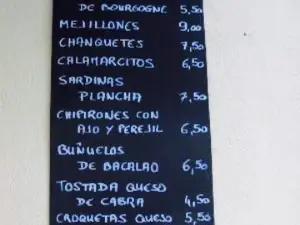 DE BOURGOGNE 5,50
MEJILLONES 9,00
CHANQUETES 7,50
CALAMARCITOS 6,50
SARDINAS
PLANCHA 7,50
CHIPIRONES CON
AJO Y PEREJIL 6,50
BUÑUELOS
DE BACALAO 6,50
TOSTADA QUESO
DE CABRA 4,50
CROQUETAS QUESO 5,50